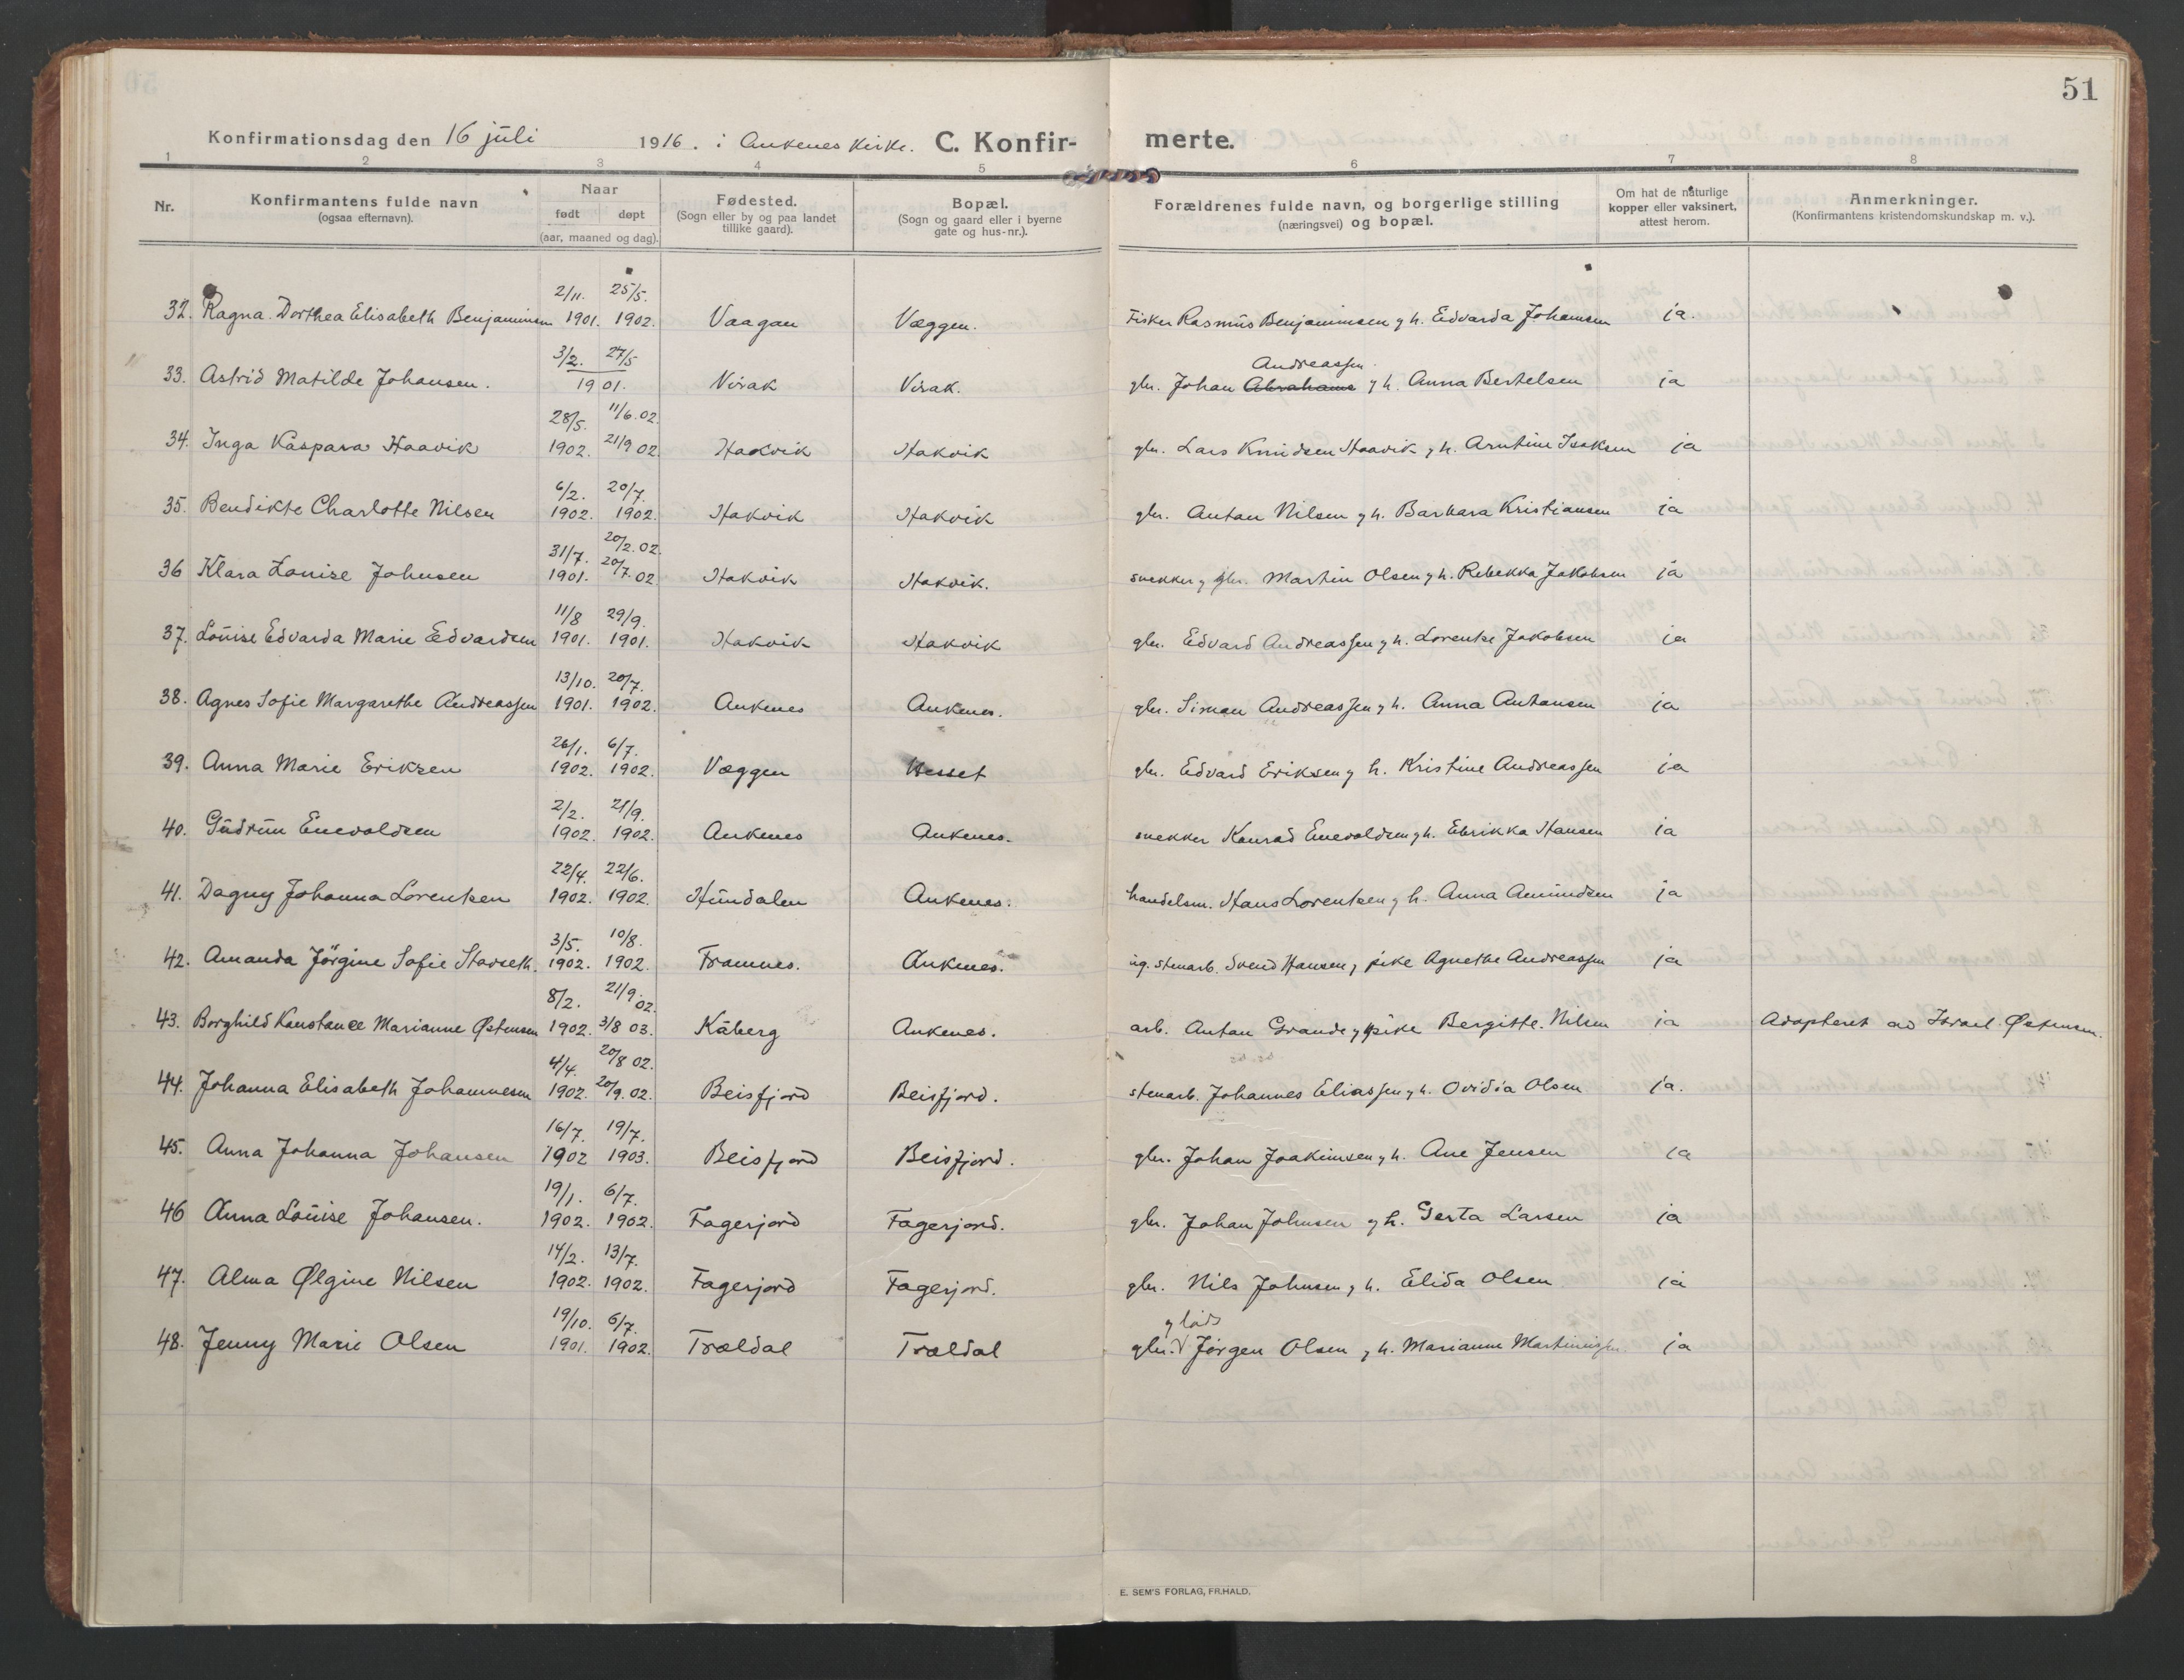 51
Konfirmationsdag den 16 juli 1916. i Ankenes kirke. C. Konfir- merte.
1 2 3 4 5 6 7 8
Nr. Konfirmantens fulde navn (ogsaa efternavn). Naar født døpt (aar, maaned og dag). Fødested. (Sogn eller by og paa landet tillike gaard). Bopæl. (Sogn og gaard eller i byerne gate og hus-nr.). Forældrenes fulde navn, og borgerlige stilling (næringsvei) og bopæl. Om hat de naturlige kopper eller vaksinert, attest herom. Anmerkninger. (Konfirmantens kristendomskundskap m. v.).
2/11. 25/5.
32. Ragna Dorthea Elisabeth Benjaminsen 1901. 1902. Vaagan Væggen. Fisker Rasmus Benjaminsen g h. Edvarda Johansen ja.
3/2. 27/5 Andreassen.
33. Astrid Matilde Johansen. 1901. Virak Virak. gbr. Johan Abrahams g h. Anna Bertelsen ja
28/5. 11/6.02.
34. Inga Kaspara Haavik 1902. 21/9 02 Hakvik Hakvik gbr. Lars Knudsen Haavik g h. Arntine Isaksen ja
6/2. 20/7.
35. Bendikte Charlotte Nilsen 1902. 1902. Hakvik Hakvik gbr. Anton Nilsen g h. Barbara Kristiansen ja
31/7. 20/2.02.
36 Klara Louise Johnsen 1901. 20/7.02 Hakvik Hakvik. snekker g gbr. Martin Olsen g h. Rebekka Jakobsen ja
11/8 29/9.
37. Louise Edvarda Marie Edvardsen 1901. 1901. Hakvik Hakvik gbr. Edvard Andreassen g h. Lorentse Jakobsen ja
13/10. 20/7.
38. Agnes Sofie Margarethe Andreassen 1901. 1902. Ankenes Ankenes. gbr. Simon Andreassen g h. Anna Antonsen ja
26/1. 6/7.
39. Anna Marie Eriksen 1902. 1902. Væggen Hesset gbr. Edvard Eriksen g h. Kristine Andreassen ja
2/2. 21/9.
40. Gudrun Enevoldsen 1902. 1902. Ankenes Ankenes. snekker Konrad Enevoldsen g h. Ebrikka Hansen ja
22/4. 22/6.
41. Dagny Johanna Lorentsen 1902. 1902. Hundalen Ankenes. handelsm. Hans Lorentsen g h. Anna Amundsen ja
3/5. 10/8.
42. Amanda Jörgine Sofie Stavseth. 1902. 1902. Framnes. Ankenes. ug. stenarb. Svend Hansen g pike Agnethe Andreassen ja
8/2. 21/9.02.
43. Borghild Konstance Marianne Østensen 1902. 3/8 03. Kåberg Ankenes. arb. Anton Grande g pike Bergitte Nilsen ja Adopteret av Israel Østensen.
4/4. 20/8 02.
44. Johanna Elisabeth Johannesen 1902. 20/9.02. Beisfjord Beisfjord. stenarb. Johannes Eliassen g h. Ovidia Olsen ja.
16/7. 19/7.
45. Anna Johanna Johansen 1902 1903. Beisfjord Beisfjord. gbr. Johan Joakimsen g h. Ane Jensen ja
19/1. 6/7.
46 Anna Louise Johansen. 1902. 1902. Fagerjord Fagerjord. gbr. Johan Johnsen g h. Gerta Larsen ja
14/2. 13/7.
47. Alma Ølgine Nilsen 1902. 1902. Fagerjord Fagerjord. gbr. Nils Johnsen g h. Elida Olsen ja
19/10. 6/7. g lods
48. Jenny Marie Olsen 1901. 1902. Trældal Trældal gbr. Jörgen Olsen g h. Marianne Martinussen. ja
E. SEM'S FORLAG, FR.HALD.